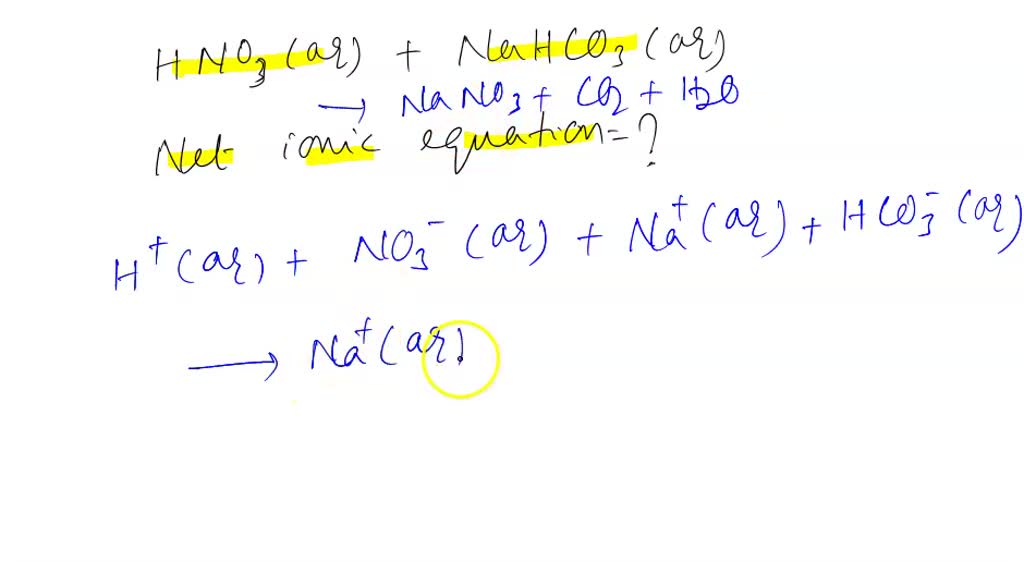 HNO₃(aq) + NaHCO₃(aq)
→ NaNO₃ + CO₂ + H₂O
Net ionic equation = ?
H⁺(aq) + NO₃⁻(aq) + Na⁺(aq) + HCO₃⁻(aq)
→ Na⁺(aq)